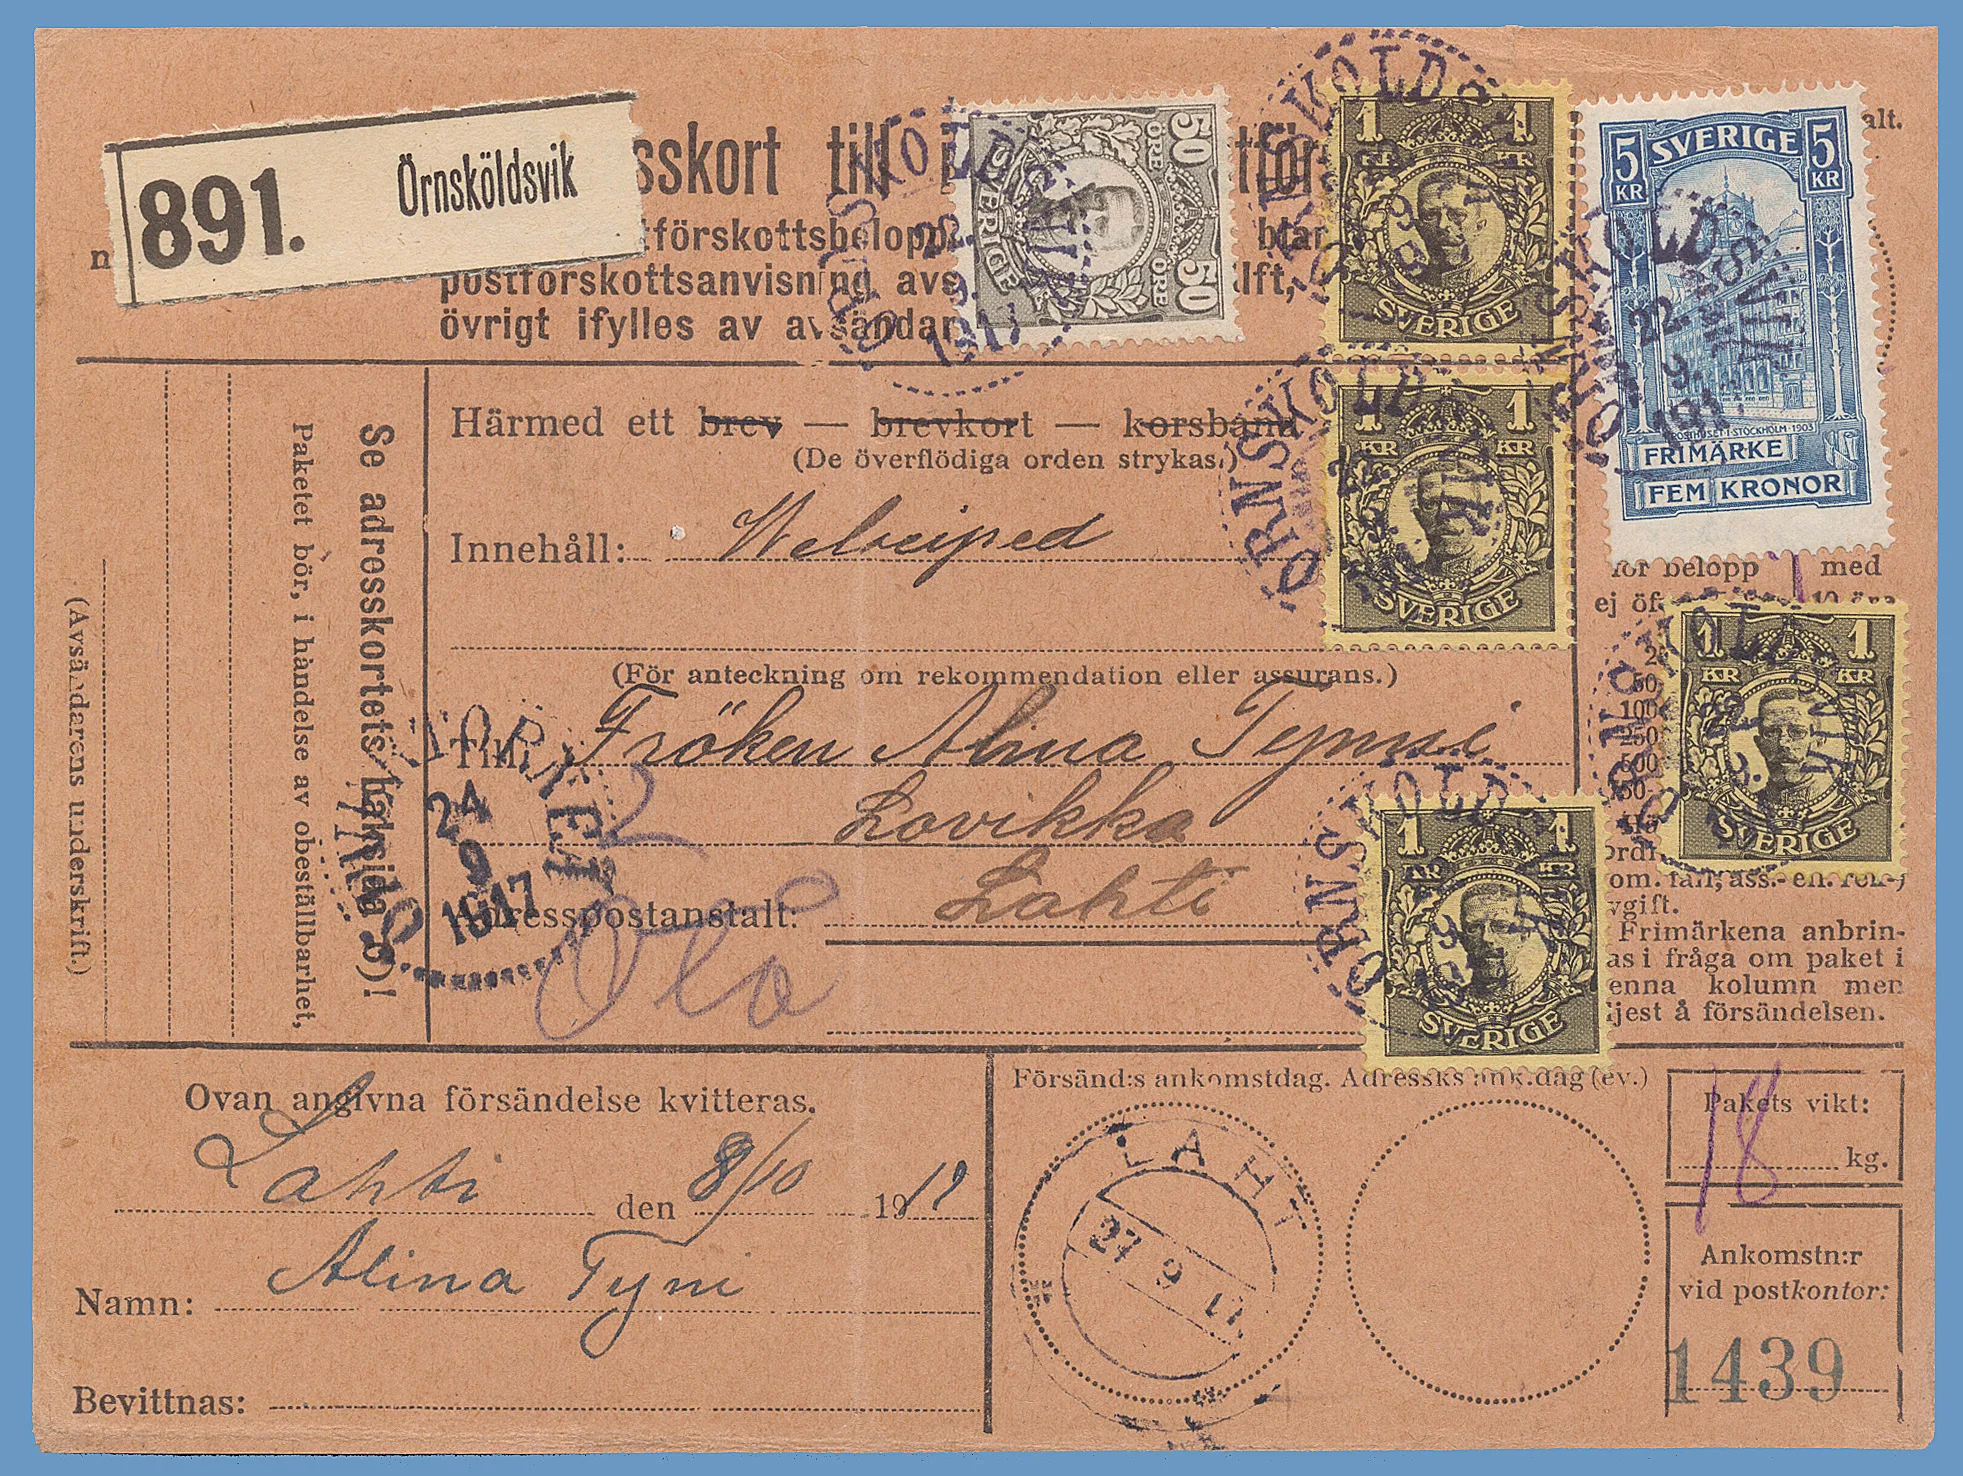 891. Örnsköldsvik
sskort till
tförskottsbelopp
postförskottsanvisning avs lft,
övrigt ifylles av avsändar
alt.
50 ÖRE SVERIGE 50 ÖRE
1 KR 1 KR SVERIGE
5 KR SVERIGE 5 KR
POSTHUSET·I·STOCKHOLM·1903
FRIMÄRKE
FEM KRONOR
ÖRNSKÖLDSVIK
22 9 1917
1 KR 1 KR SVERIGE
1 KR 1 KR SVERIGE
1 KR 1 KR SVERIGE
(Avsändarens underskrift.)
Paketet bör, i händelse av obeställbarhet,
Se adresskortets baksida
Härmed ett brev — brevkort — korsband
(De överflödiga orden strykas.)
Innehåll: Velociped
(För anteckning om rekommendation eller assurans.)
Till Fröken Alina Tynni
Lovikka
Adresspostanstalt: Lahti
24 9 1917
för belopp med
ej öf 10 öre
Frimärkena anbrin-
as i fråga om paket i
enna kolumn men
ljest å försändelsen.
Ovan angivna försändelse kvitteras.
Lahti den 8/10 1917
Namn: Alina Tyni
Bevittnas:
Försänd:s ankomstdag. Adressks ank.dag (ev.)
LAHTI
27 9 17
Pakets vikt:
18 kg.
Ankomstn:r
vid postkontor:
1439